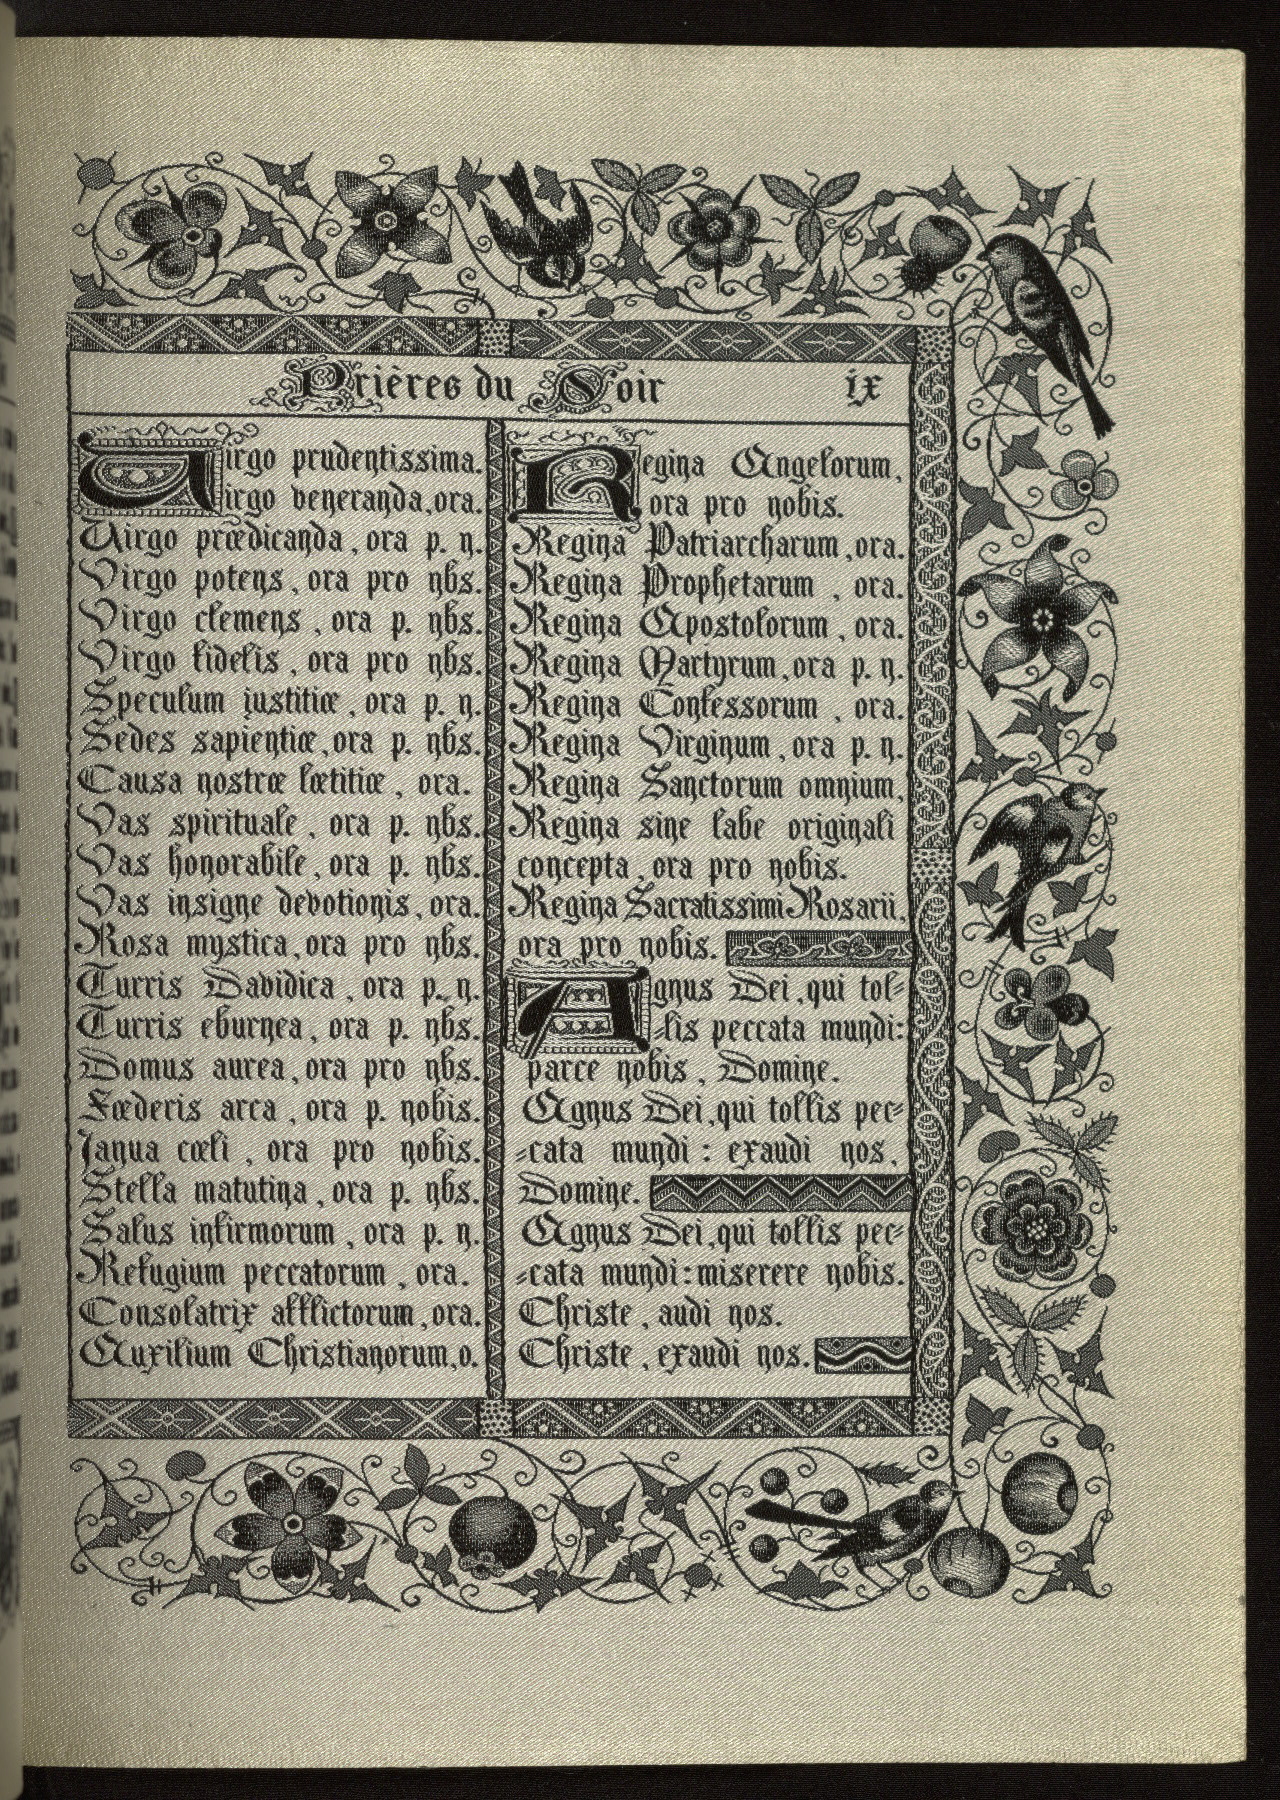 Prières du Soir ix
Virgo prudentissima.
Virgo veneranda, ora.
Virgo prædicanda, ora p. n.
Virgo potens, ora pro nbs.
Virgo clemens, ora p. nbs.
Virgo fidelis, ora pro nbs.
Speculum justitiæ, ora p. n.
Sedes sapientiæ, ora p. nbs.
Causa nostræ lætitiæ, ora.
Vas spirituale, ora p. nbs.
Vas honorabile, ora p. nbs.
Vas insigne devotionis, ora.
Rosa mystica, ora pro nbs.
Turris Davidica, ora p. n.
Turris eburnea, ora p. nbs.
Domus aurea, ora pro nbs.
Fœderis arca, ora p. nobis.
Janua cœli, ora pro nobis.
Stella matutina, ora p. nbs.
Salus infirmorum, ora p. n.
Refugium peccatorum, ora.
Consolatrix afflictorum, ora.
Auxilium Christianorum, o.
Regina Angelorum,
ora pro nobis.
Regina Patriarcharum, ora.
Regina Prophetarum, ora.
Regina Apostolorum, ora.
Regina Martyrum, ora p. n.
Regina Confessorum, ora.
Regina Virginum, ora p. n.
Regina Sanctorum omnium,
Regina sine labe originali
concepta, ora pro nobis.
Regina Sacratissimi Rosarii,
ora pro nobis.
Agnus Dei, qui tol-
-lis peccata mundi:
parce nobis, Domine.
Agnus Dei, qui tollis pec-
-cata mundi: exaudi nos,
Domine.
Agnus Dei, qui tollis pec-
-cata mundi: miserere nobis.
Christe, audi nos.
Christe, exaudi nos.